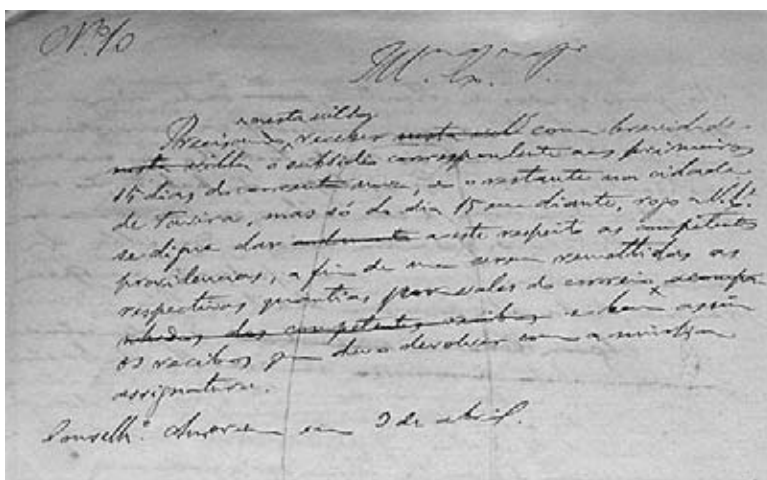 Nº 10
Illmº Exmº
nesta villa
Precisando receber nesta com brevidade
nesta villa o subsidio correspondente aos primeiros
15 dias do corrente mez, e o restante na cidade
de Tavira, mas só do dia 15 em diante, rogo a V. Exª
se digne dar a este respeito as competentes
providencias, a fim de me serem remettidas as
respectivas quantias por vales do correio, acompa-
nhados dos competentes recibos e bem assim
os recibos que devo devolver com a minha
assignatura.
em 3 de abril.